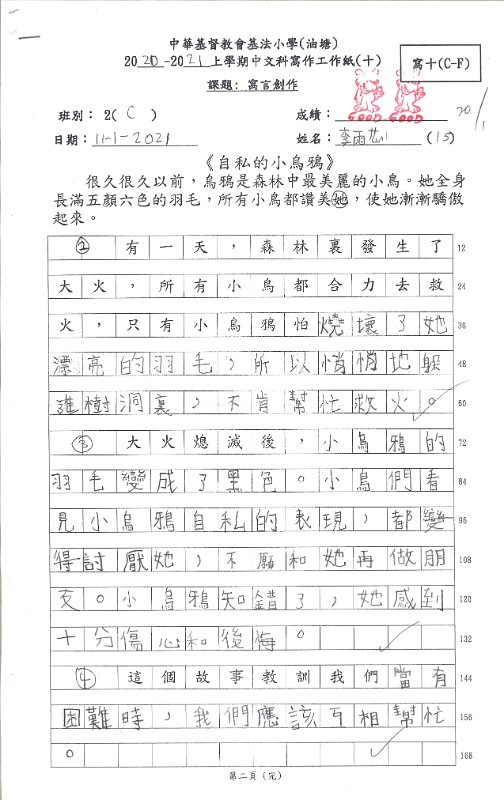 中華基督教會基法小學(油塘)
2020-2021上學期中文科寫作工作紙(十)
寫十(C-F)
課題: 寓言創作
GOOD GOOD
班別: 2( C )
成績:
日期: 11-1-2021
姓名: (15)
《自私的小烏鴉》
很久很久以前,烏鴉是森林中最美麗的小鳥。她全身
長滿五顏六色的羽毛,所有小鳥都讚美她,使她漸漸驕傲
起來。
② 有一天,森林裏發生了 12
大火,所有小鳥都合力去救 24
火,只有小烏鴉怕燒壞了她 36
漂亮的羽毛,所以悄悄地躲 48
進樹洞裏,不肯幫忙救火。 60
③ 大火熄滅後,小烏鴉的 72
羽毛變成了黑色。小鳥們看 84
見小烏鴉自私的表現,都變 96
得討厭她,不願和她再做朋 108
友。小烏鴉知錯了,她感到 120
十分傷心和後悔。 132
④ 這個故事教訓我們當有 144
困難時,我們應該互相幫忙 156
。 168
第二頁(完)